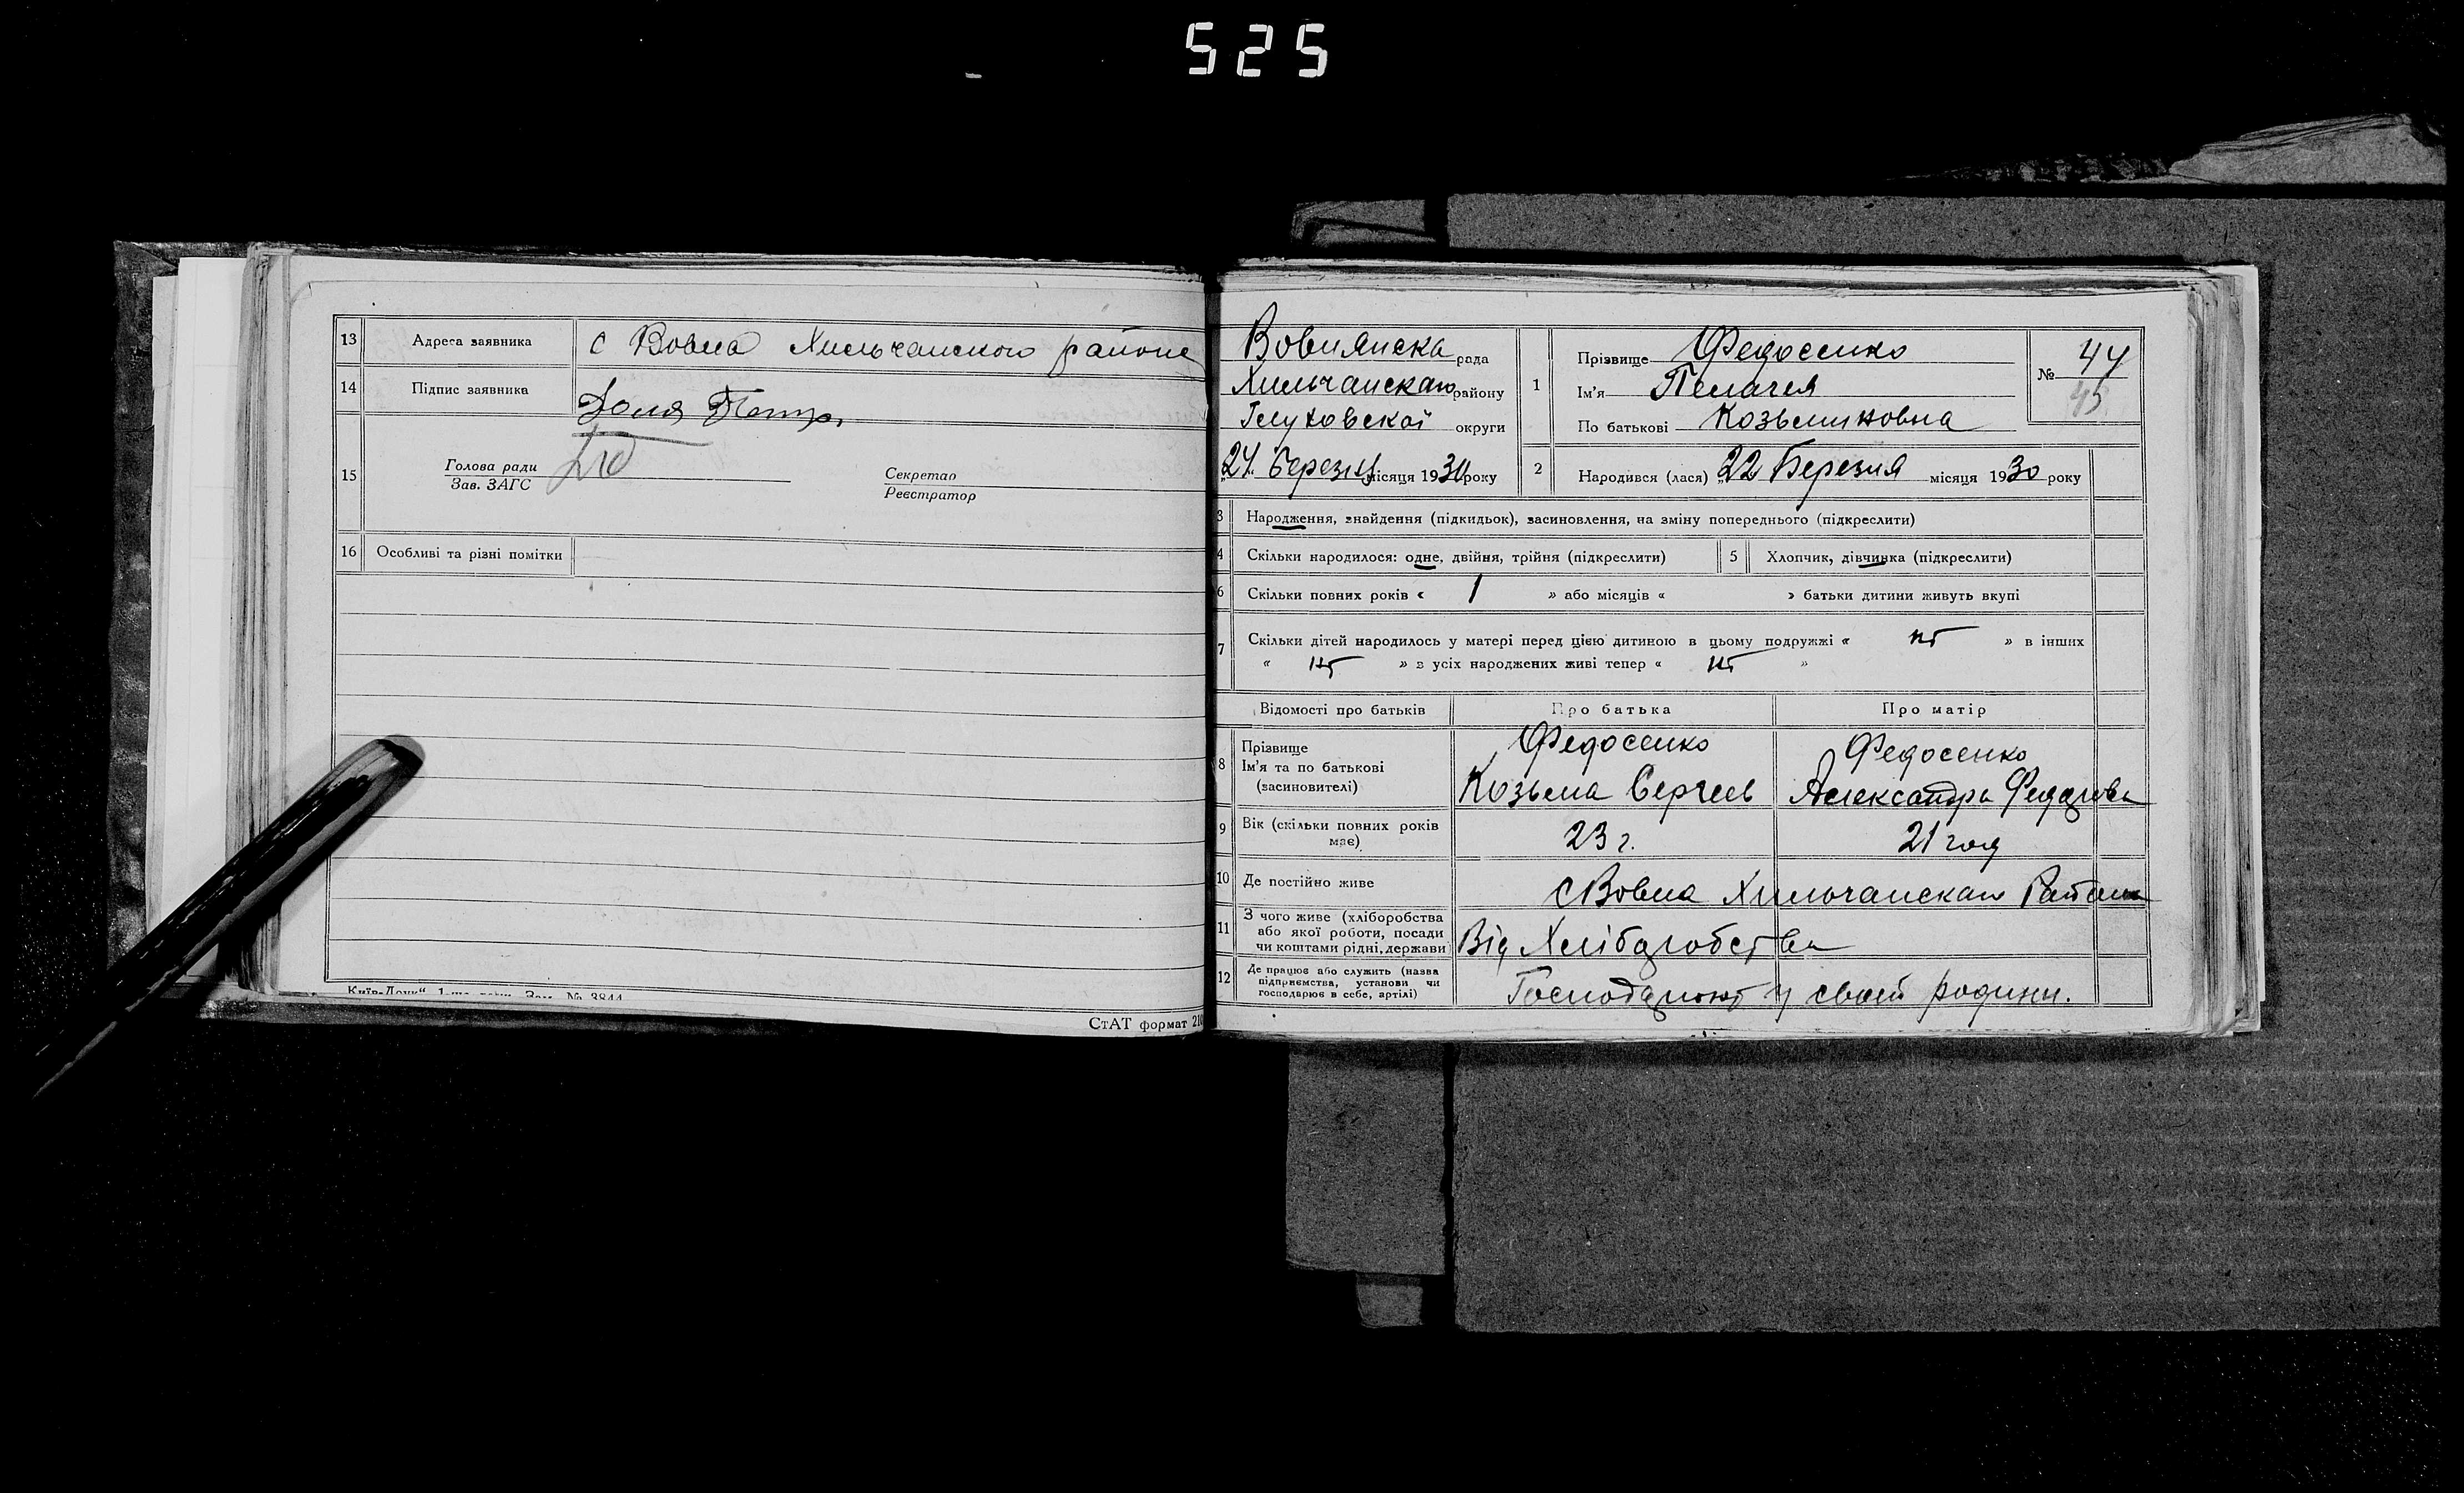 525
13 Адреса заявника с Вовна Хильчанского районе
14 Підпис заявника Доля Петр
15 Голова ради
Зав. ЗАГС
Секретар
Реєстратор
16 Особливі та різні помітки
СтАТ формат
Вовнянска рада
Хильчанскаго району
Глуховской округи
„24 березня місяця 1930 року
1 Прізвище Федосенко
Ім'я Пелагея
По батькові Козьминовна
№ 44
45
2 Народився (лася) „22 Березня місяця 1930 року
3 Народження, знайдення (підкидьок), засиновлення, на зміну попереднього (підкреслити)
4 Скільки народилося: одне, двійня, трійня (підкреслити) 5 Хлопчик, дівчинка (підкреслити)
6 Скільки повних років « 1 » або місяців « » батьки дитини живуть вкупі
7 Скільки дітей народилось у матері перед цією дитиною в цьому подружжі « нт » в інших
« нт » з усіх народжених живі тепер « нт »
Відомості про батьків Про батька Про матір
8 Прізвище
Ім'я та по батькові
(засиновителі)
Федосенко
Козьма Сергеев
Федосенко
Александра
9 Вік (скільки повних років
має)
23 г. 21 год
10 Де постійно живе с Вовна Хильчанскаго Района
11 З чого живе (хліборобства
або якої роботи, посади
чи коштами рідні, держави)
Від Хліборобства
12 Де працює або служить (назва
підприємства, установи чи
господарює в себе, артілі)
Господарюют у своей родини.